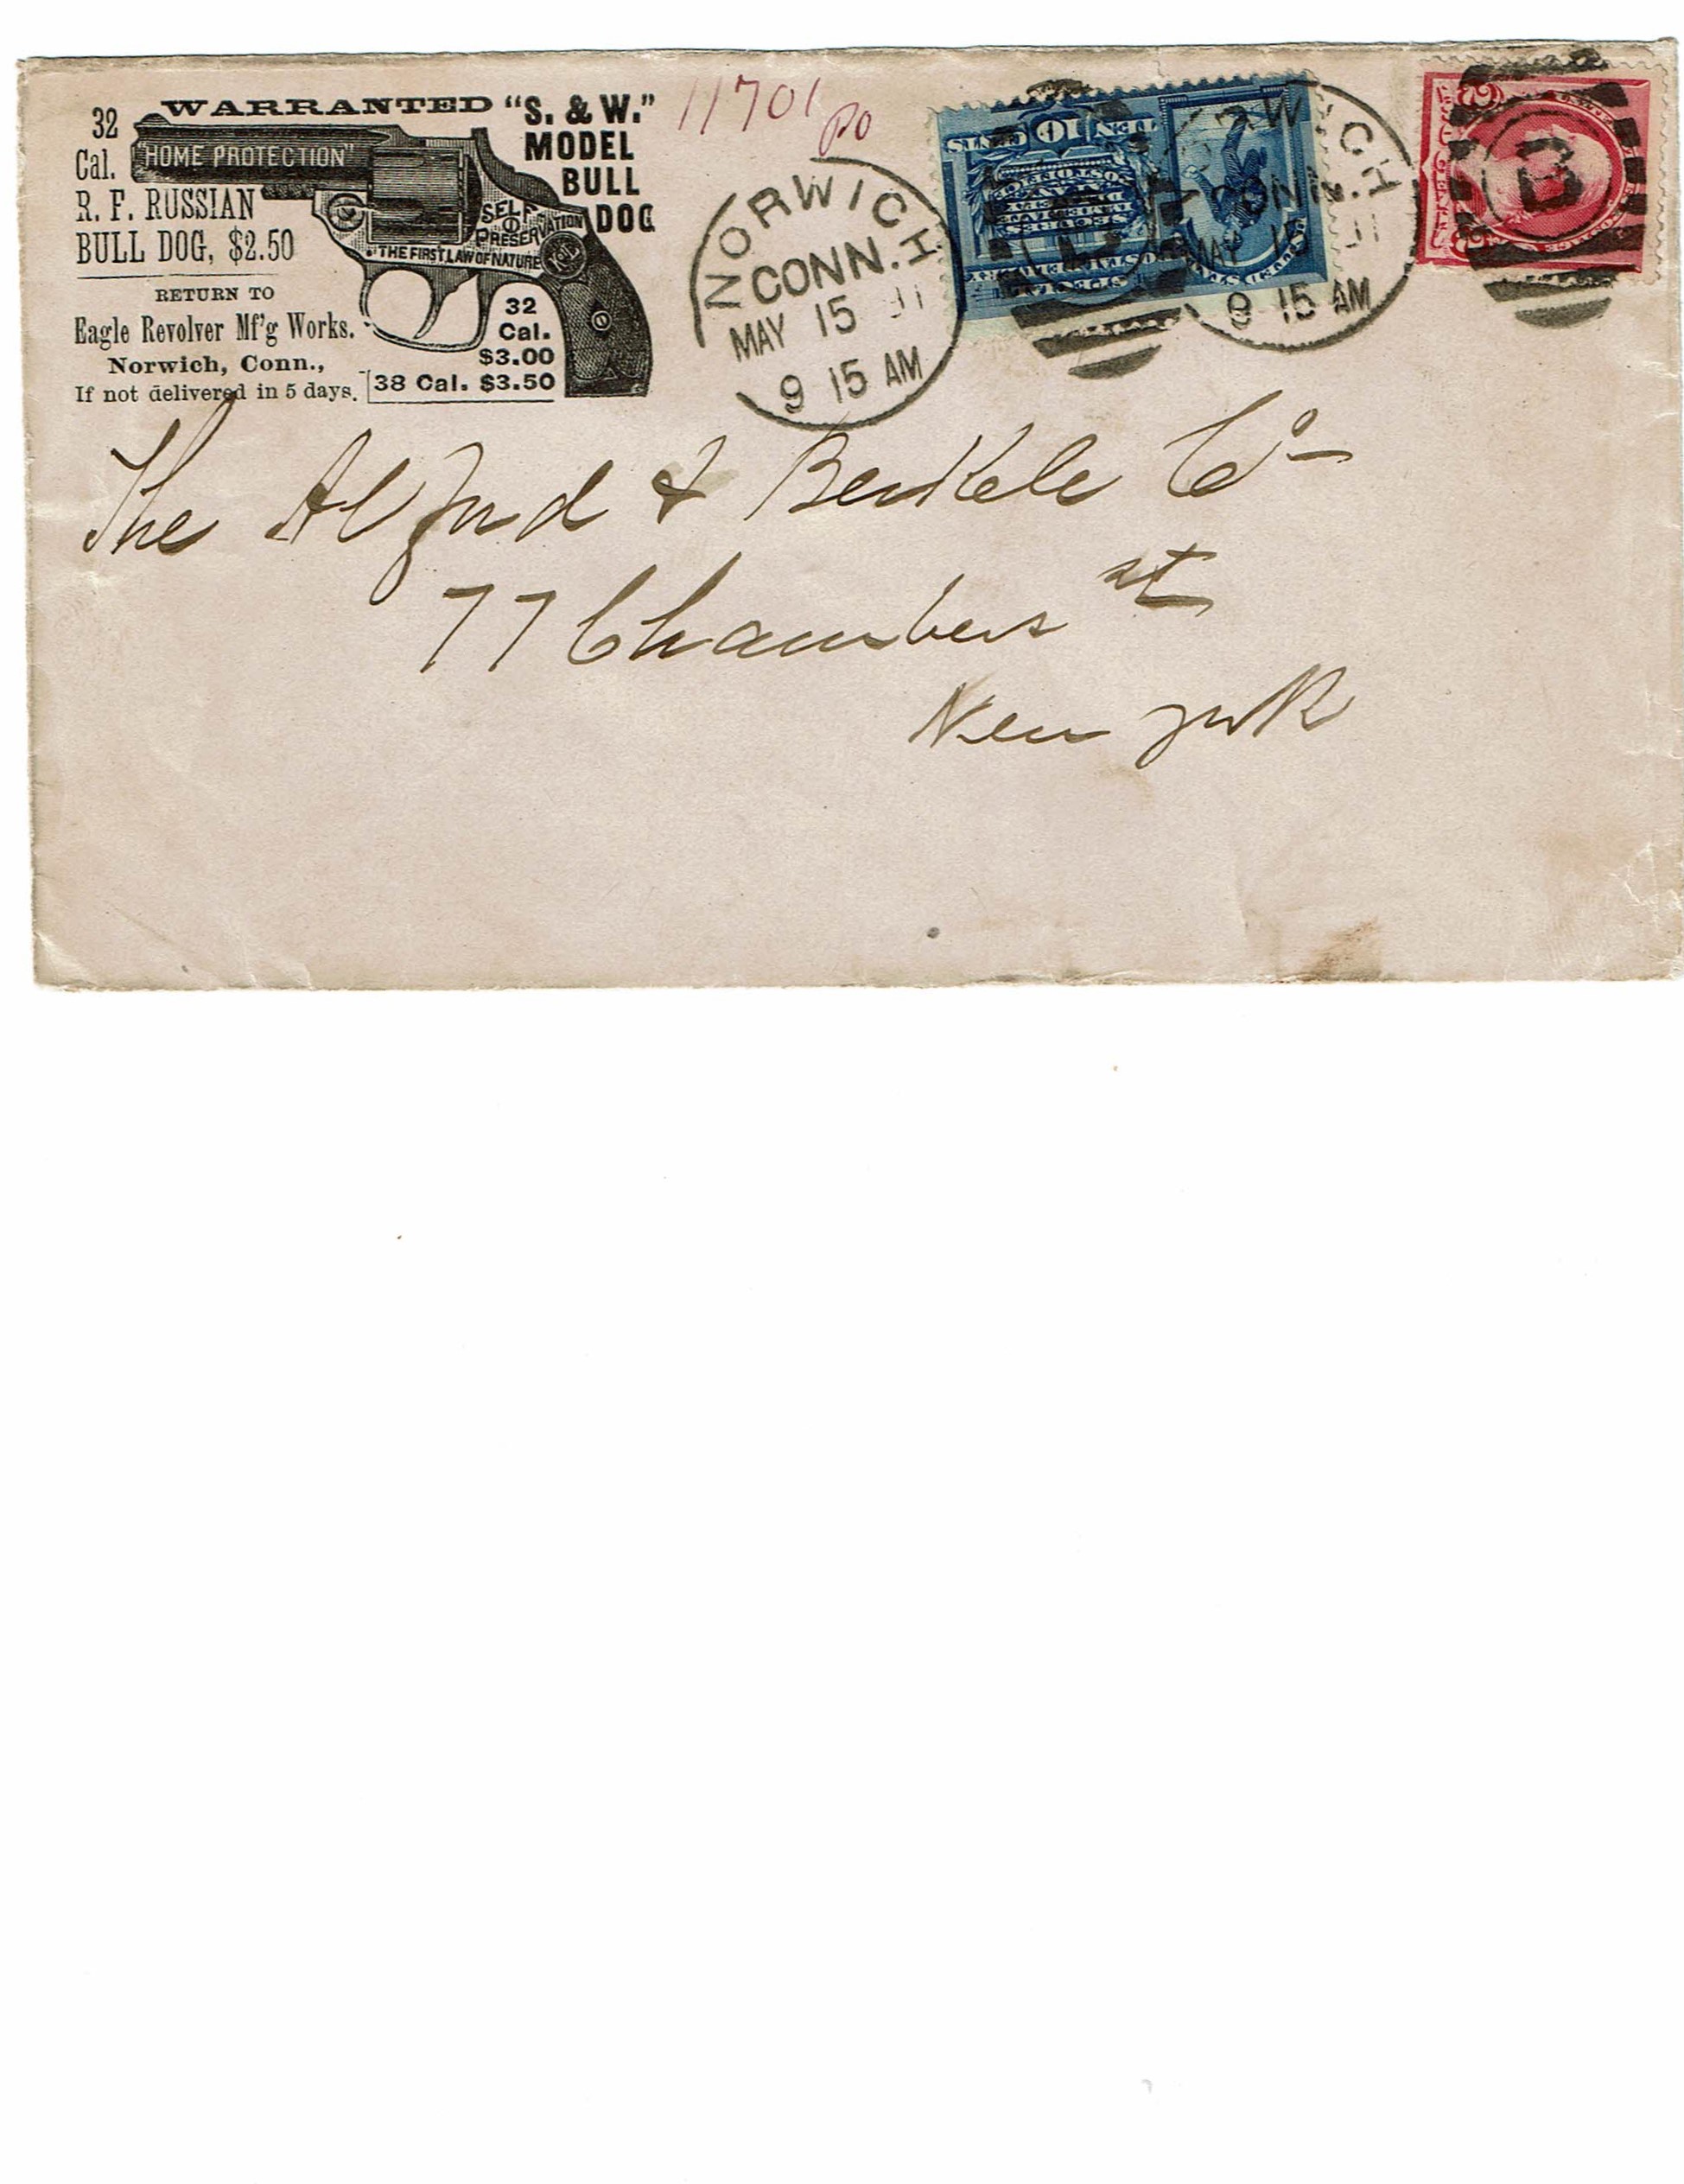 WARRANTED "S. & W."
MODEL
BULL
DOG
32
Cal.
"HOME PROTECTION"
R. F. RUSSIAN
BULL DOG, $2.50
SELF
PRESERVATION
THE FIRST LAW OF NATURE
RETURN TO
Eagle Revolver Mf'g Works.
Norwich, Conn.,
If not delivered in 5 days.
32
Cal.
$3.00
38 Cal. $3.50
11701
PO
NORWICH
CONN.
MAY 15 91
9 15 AM
TEN 10 CENTS
SECURES
IMMEDIATE
DELIVERY
AT A SPECIAL DELIVERY
CONN.
MAY 15
9 15 AM
The Alford & Berkele Co
77 Chambers st
New York